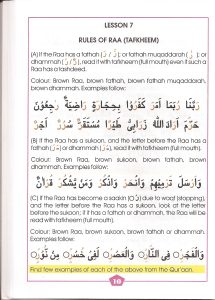 LESSON 7
RULES OF RAA (TAFKHEEM)
(A) If the Raa has a fathah (رَ / رً), or fathah muqaddarah (رٰ), or
dhammah (رُ / رٌ), read it with tafkheem (full mouth) even if such a
Raa has a tashdeed.
Colour: Brown Raa, brown fathah, brown fathah muqaddarah,
brown dhammah. Examples follow:
رَبَّنَا رُبَمَا اَمَرَ كَفَرُوْا بِحِجَارَةٍ رَاضِيَةً رٰجِعُوْنَ
اَرَادَ اللّٰهُ زَرَابِيُّ طَيْرًا مُسْتَقَرٌّ سُرُرٌ اَجْرٌ
(B) If the Raa has a sukoon, and the letter before the Raa has a
fathah or dhammah, read it with tafkheem (full mouth).
Colour: Brown Raa, brown sukoon, brown fathah, brown
dhammah. Examples follow:
وَاَرْسَلَ قُرْاٰنٌ
(C) If the Raa has become a saakin due to waqf (stopping),
and the letter before the Raa has a sukoon, look at the letter
before the sukoon; if it has a fathah or dhammah, the Raa will be
read with tafkheem (full mouth).
Colour: Brown Raa, brown sukoon, brown fathah, brown dhammah.
Examples follow:
وَالْفَجْرِ وَالْعَصْرِ لَفِيْ خُسْرٍ
Find few examples of each of the above from the Qur'aan.
10